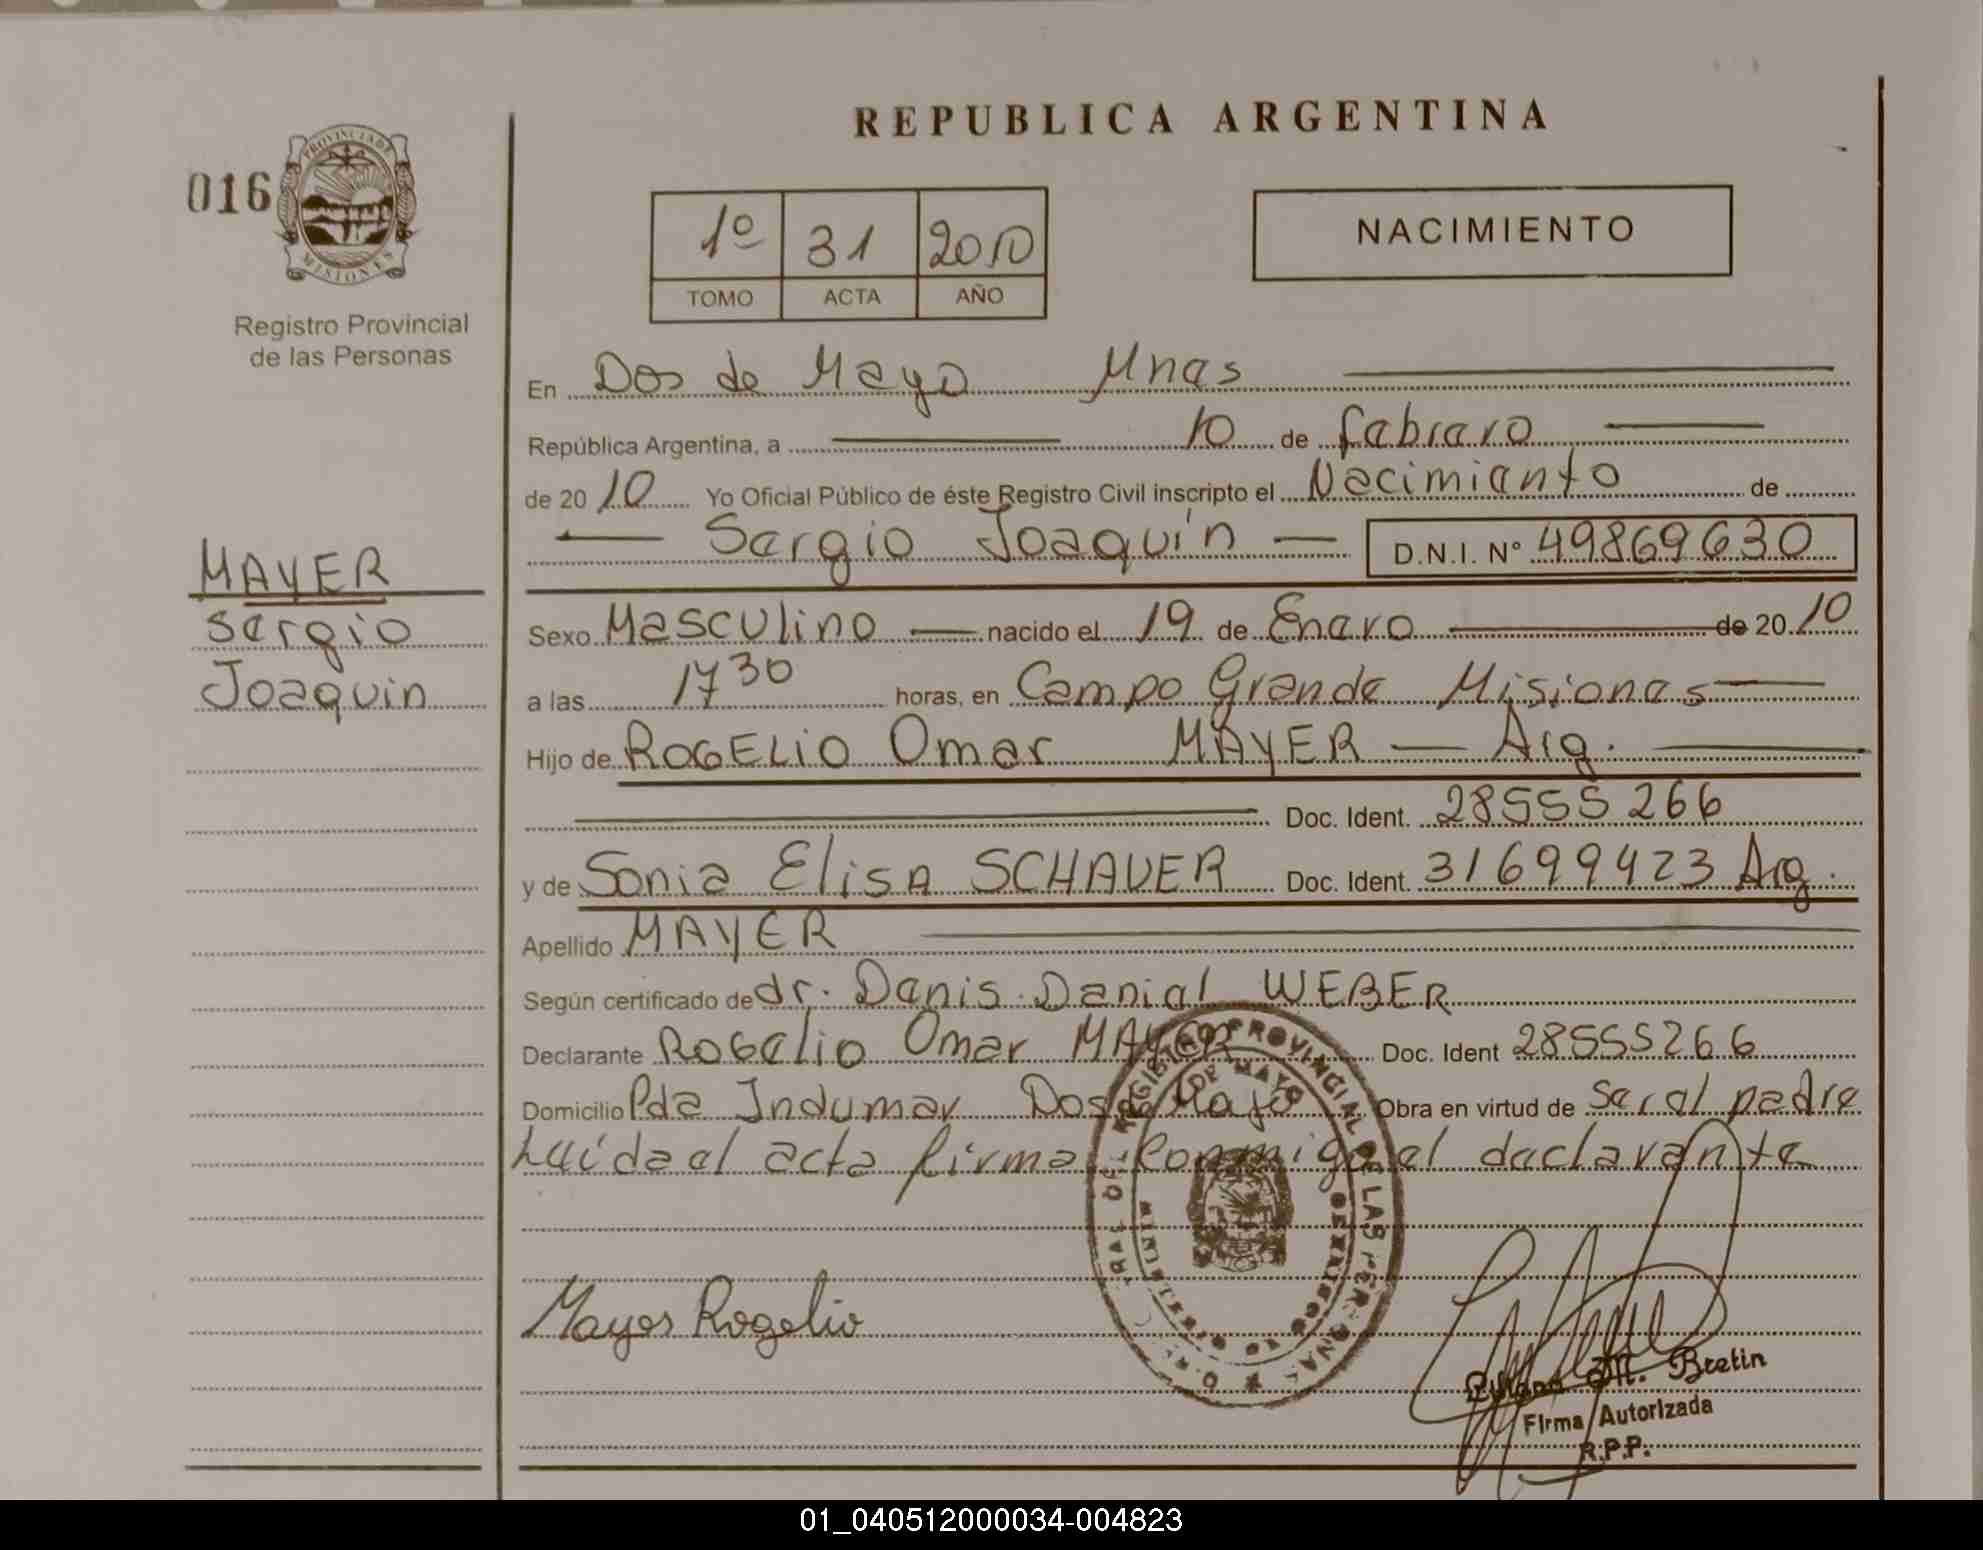 REPUBLICA ARGENTINA
016
PROVINCIA DE
MISIONES
Registro Provincial
de las Personas
1º 31 2010
TOMO ACTA AÑO
NACIMIENTO
MAYER
Sergio
Joaquin
En Dos de Mayo Mnes
República Argentina, a 10 de febrero
de 20 10 Yo Oficial Público de éste Registro Civil inscripto el Nacimiento de
Sergio Joaquín D.N.I. Nº 49869630
Sexo Masculino nacido el 19 de Enero de 20 10
a las 17 30 horas, en Campo Grande Misiones
Hijo de ROGELIO Omar MAYER Arg.
Doc. Ident. 28555266
y de Sonia Elisa SCHAUER Doc. Ident. 31699423 Arg.
Apellido MAYER
Según certificado de dr. Denis Daniel WEBER
Declarante Rogelio Omar MAYER Doc. Ident 28555266
Domicilio Pda Indumar Dos de Mayo Obra en virtud de ser el padre
Leída el acta firma conmigo el declarante
REGISTRO PROVINCIAL DE LAS PERSONAS
DE MAYO
MINISTERIO DE GOBIERNO
Mayer Rogelio
M. Bretin
Firma Autorizada
R.P.P.
01_040512000034-004823